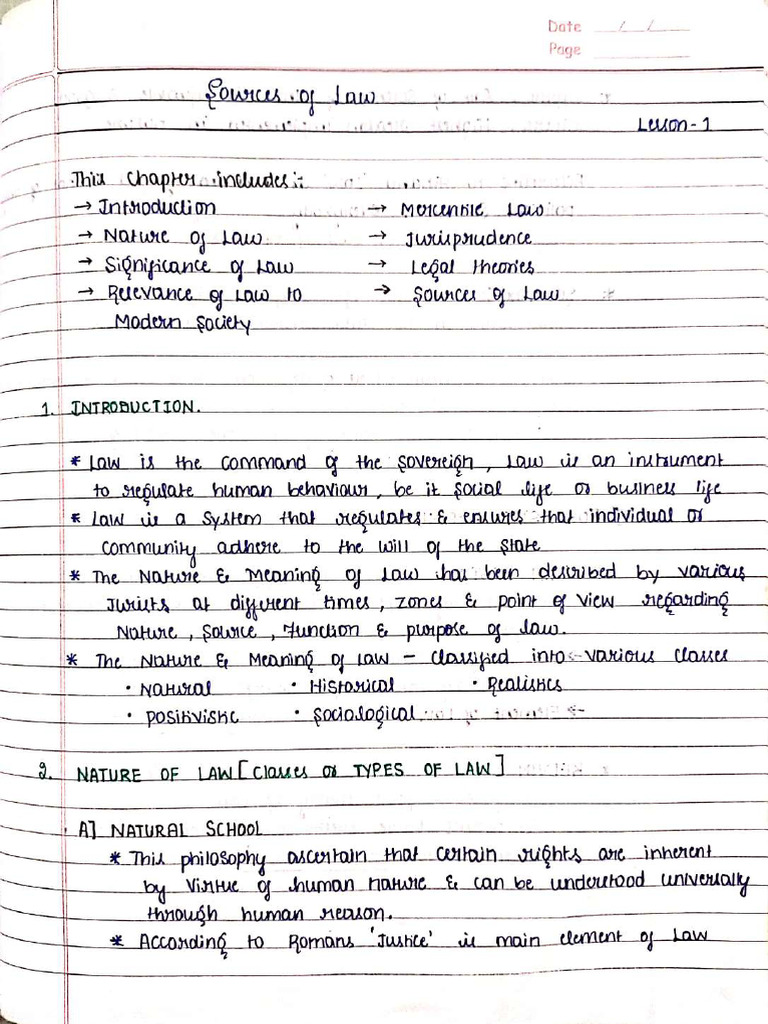 Date / /
Page
Sources of Law
Lesson-1
This Chapter includes:
→ Introduction → Mercentile Law
→ Nature of Law → Jurisprudence
→ Significance of Law → Legal theories
→ Relevance of Law to → Sources of Law
Modern Society
1. INTRODUCTION.
* Law is the command of the Sovereign, Law is an instrument
to regulate human behaviour, be it social life or business life
* Law is a system that regulates & ensures that individual or
community adhere to the will of the state
* The Nature & Meaning of Law has been described by various
Jurists at different times, zones & point of view regarding
Nature, Source, Function & purpose of law.
* The Nature & Meaning of Law - Classified into various classes
• Natural • Historical • Realistics
• Positivistic • Sociological
2. NATURE OF LAW [Classes or TYPES OF LAW]
A] NATURAL SCHOOL
* This philosophy ascertain that certain rights are inherent
by virtue of human nature & can be understood universally
through human reason.
* According to Romans 'Justice' is main element of Law